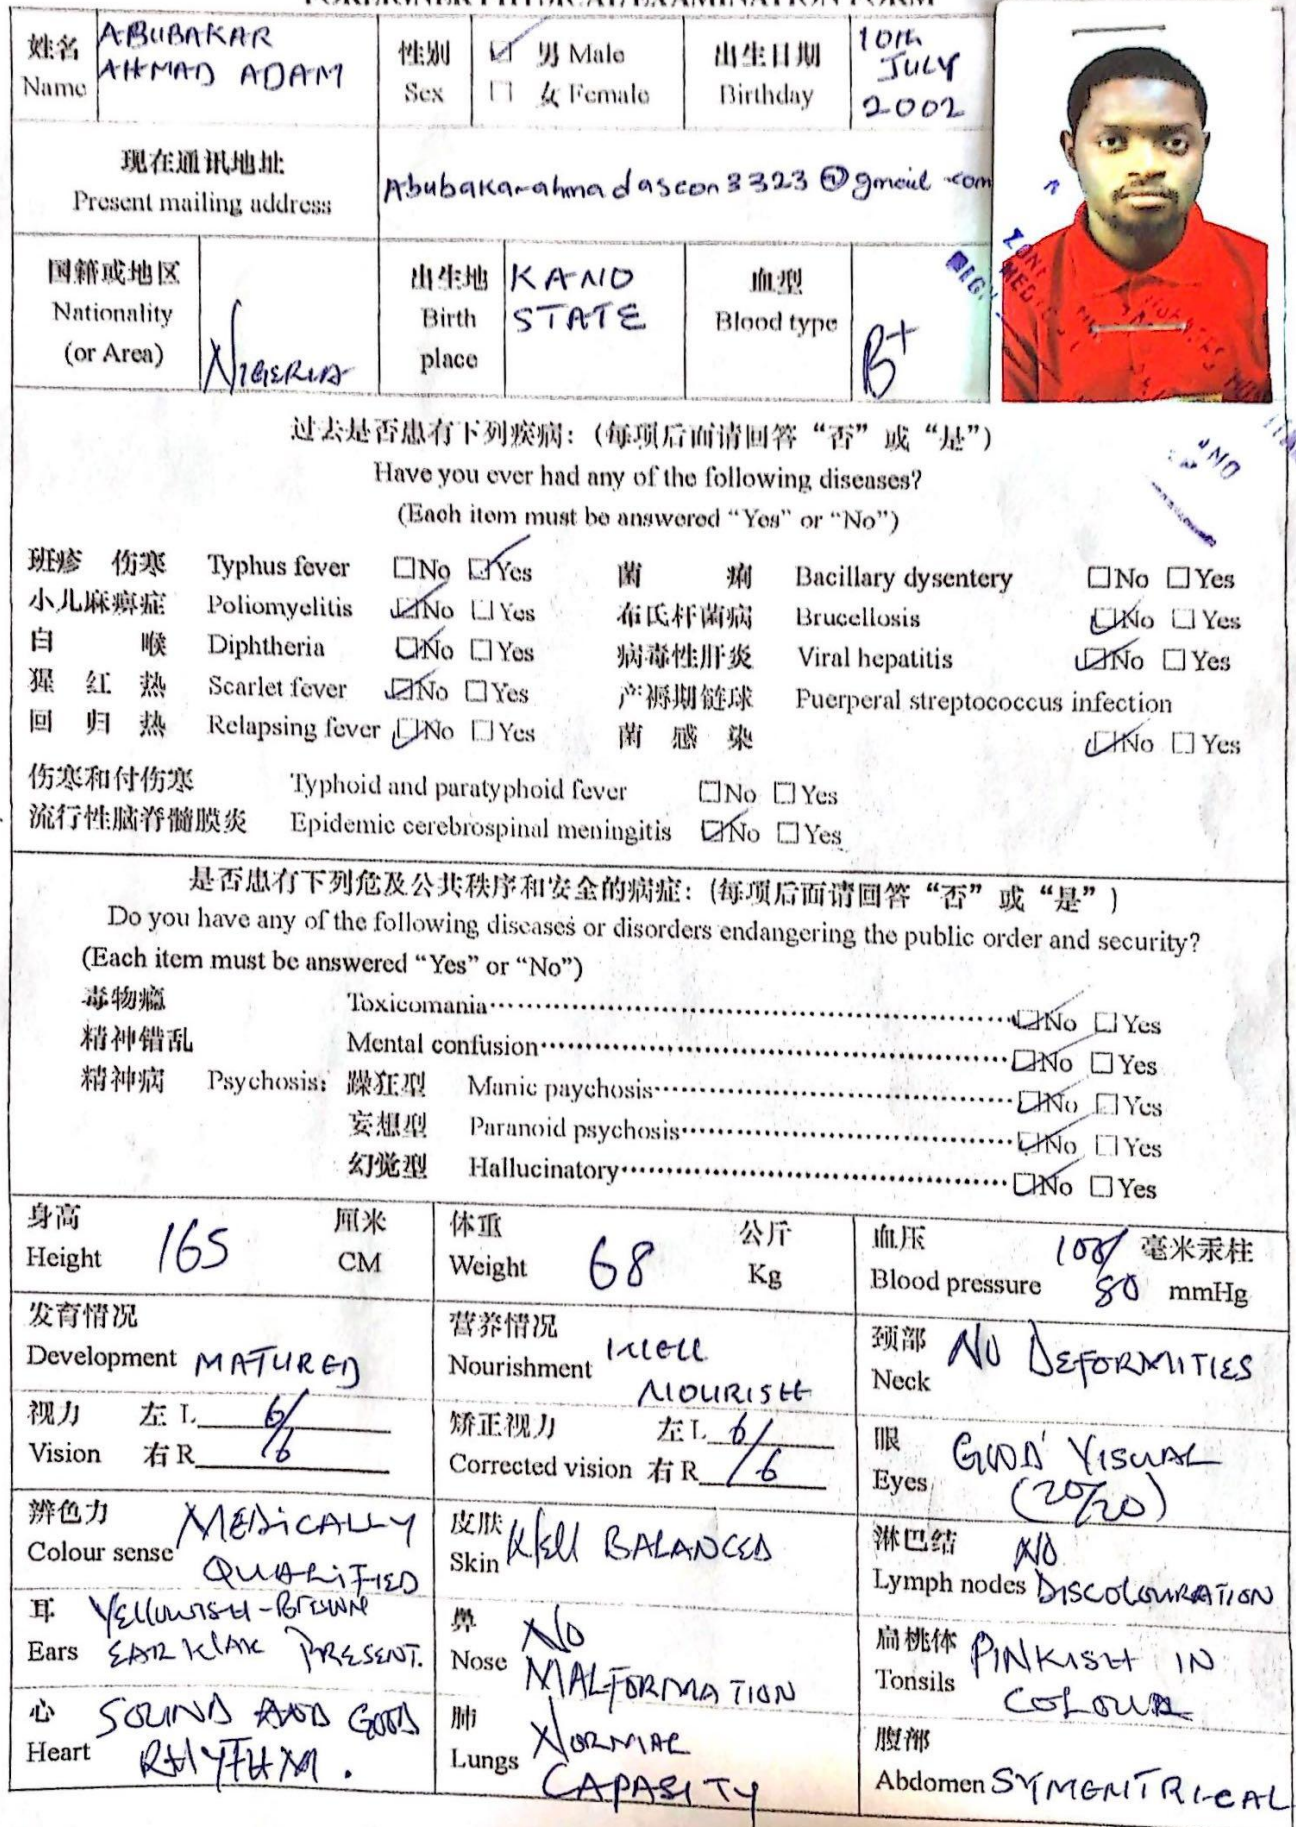 FOREIGNER PHYSICAL EXAMINATION FORM
姓名 Name ABUBAKAR AHMAD ADAM 性别 Sex ☑ 男 Male □ 女 Female 出生日期 Birthday 10th JULY 2002
现在通讯地址
Present mailing address
国籍或地区 Nationality (or Area) NIGERIA 出生地 Birth place KANO STATE 血型 Blood type B+
过去是否患有下列疾病：（每项后面请回答“否”或“是”）
Have you ever had any of the following diseases?
(Each item must be answered “Yes” or “No”)
班疹 伤寒 Typhus fever □No ☑Yes 菌 痢 Bacillary dysentery □No □Yes
小儿麻痹症 Poliomyelitis ☑No □Yes 布氏杆菌病 Brucellosis ☑No □Yes
白 喉 Diphtheria ☑No □Yes 病毒性肝炎 Viral hepatitis ☑No □Yes
猩 红 热 Scarlet fever ☑No □Yes 产褥期链球 Puerperal streptococcus infection
回 归 热 Relapsing fever ☑No □Yes 菌 感 染 ☑No □Yes
伤寒和付伤寒 Typhoid and paratyphoid fever □No □Yes
流行性脑脊髓膜炎 Epidemic cerebrospinal meningitis ☑No □Yes
是否患有下列危及公共秩序和安全的病症：（每项后面请回答“否”或“是”）
Do you have any of the following diseases or disorders endangering the public order and security?
(Each item must be answered “Yes” or “No”)
毒物瘾 Toxicomania ☑No □Yes
精神错乱 Mental confusion ☑No □Yes
精神病 Psychosis: 躁狂型 Manic paychosis ☑No □Yes
妄想型 Paranoid psychosis ☑No □Yes
幻觉型 Hallucinatory ☑No □Yes
身高 Height 165 厘米 CM 体重 Weight 68 公斤 Kg 血压 Blood pressure 100/80 毫米汞柱 mmHg
发育情况 Development MATURED 营养情况 Nourishment WELL NOURISH 颈部 Neck NO DEFORMITIES
视力 Vision 左 L 6/ 右 R /6 矫正视力 Corrected vision 左 L 6/ 右 R /6 眼 Eyes GOOD VISUAL (20/20)
辨色力 Colour sense MEDICALLY QUALIFIED 皮肤 Skin Well BALANCED 淋巴结 Lymph nodes NO DISCOLOURATION
耳 Ears YELLOWISH-BROWN EAR WAX PRESENT. 鼻 Nose NO MALFORMATION 扁桃体 Tonsils PINKISH IN COLOUR
心 Heart SOUND AND GOOD RHYTHM. 肺 Lungs NORMAL CAPASITY 腹部 Abdomen SYMENTRICAL